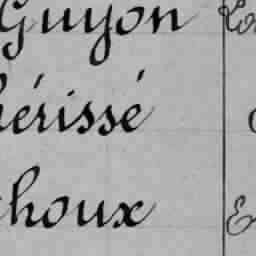 Guyon
hérissé
choux